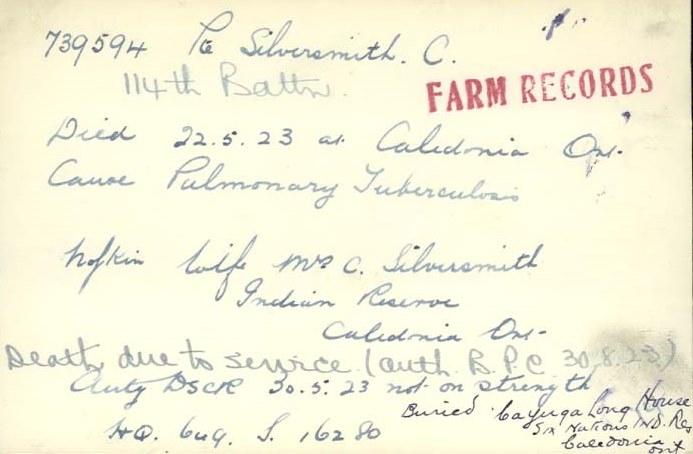 739594 Pte Silversmith. C.
114th Battn.
FARM RECORDS
Died 22.5.23 at Caledonia Ont.
Cause Pulmonary Tuberculosis
N of kin Wife Mrs C. Silversmith
Indian Reserve
Caledonia Ont-
Death due to service (auth. B.P.C 30.8.23)
Auty DSCR 30.5.23 not on strength
HQ. 649. S. 16280
Buried Cayuga Long House
Six Nations IND. Res
Caledonia
ont